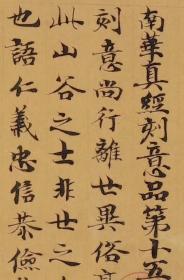 南華真經刻意品第十五
刻意尚行離世異俗高
此山谷之士非世之
也語仁義忠信恭儉